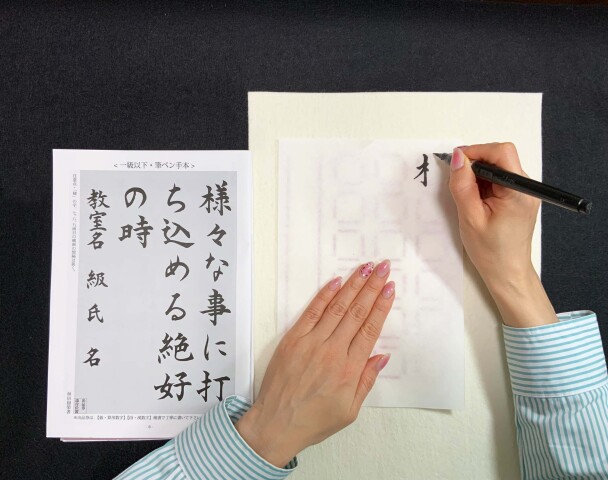 <一級以下・筆ペン手本>
様々な事に打
ち込める絶好
の時
教室名 級 氏 名